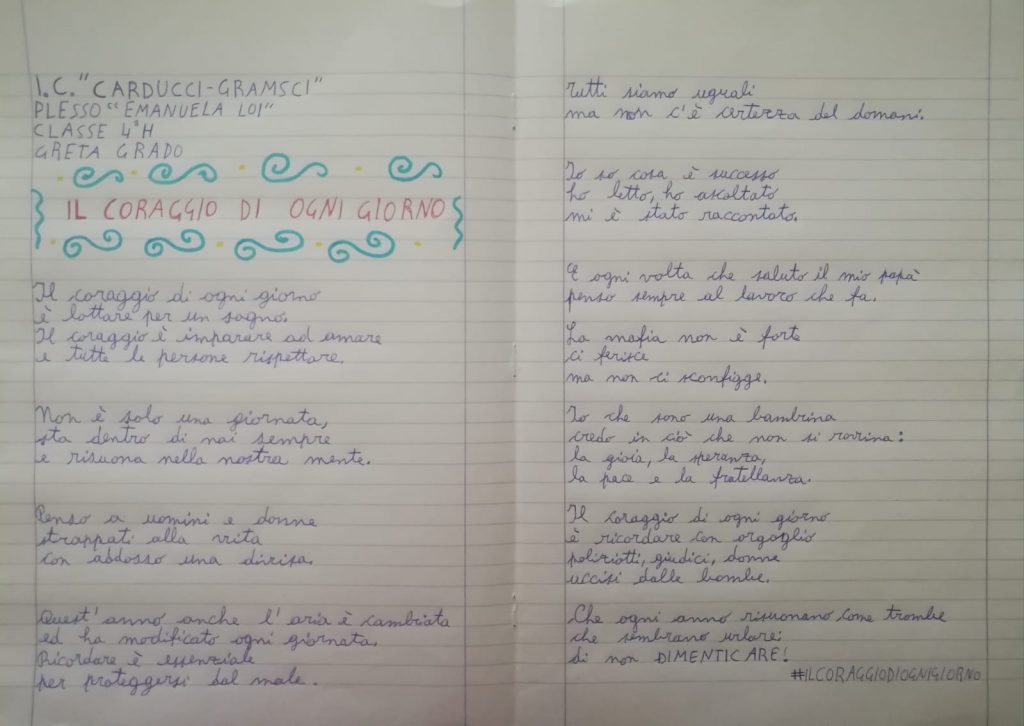 I.C. "CARDUCCI-GRAMSCI"
PLESSO "EMANUELA LOI"
CLASSE 4ªH
GRETA GRADO
IL CORAGGIO DI OGNI GIORNO
Il coraggio di ogni giorno
è lottare per un sogno.
Il coraggio è imparare ad amare
e tutte le persone rispettare.
Non è solo una giornata,
sta dentro di noi sempre
e risuona nella nostra mente.
Penso a uomini e donne
strappati alla vita
con addosso una divisa.
Quest'anno anche l'aria è cambiata
ed ha modificato ogni giornata.
Ricordare è essenziale
per proteggersi dal male.
Tutti siamo uguali
ma non c'è certezza del domani.
Io so cosa è successo
ho letto, ho ascoltato
mi è stato raccontato.
E ogni volta che saluto il mio papà
penso sempre al lavoro che fa.
La mafia non è forte
ci ferisce
ma non ci sconfigge.
Io che sono una bambina
credo in ciò che non si rovina:
la gioia, la speranza,
la pace e la fratellanza.
Il coraggio di ogni giorno
è ricordare con orgoglio
poliziotti, giudici, donne
uccisi dalle bombe.
Che ogni anno risuonano come trombe
che sembrano urlare:
di non DIMENTICARE!
#ILCORAGGIODIOGNIGIORNO